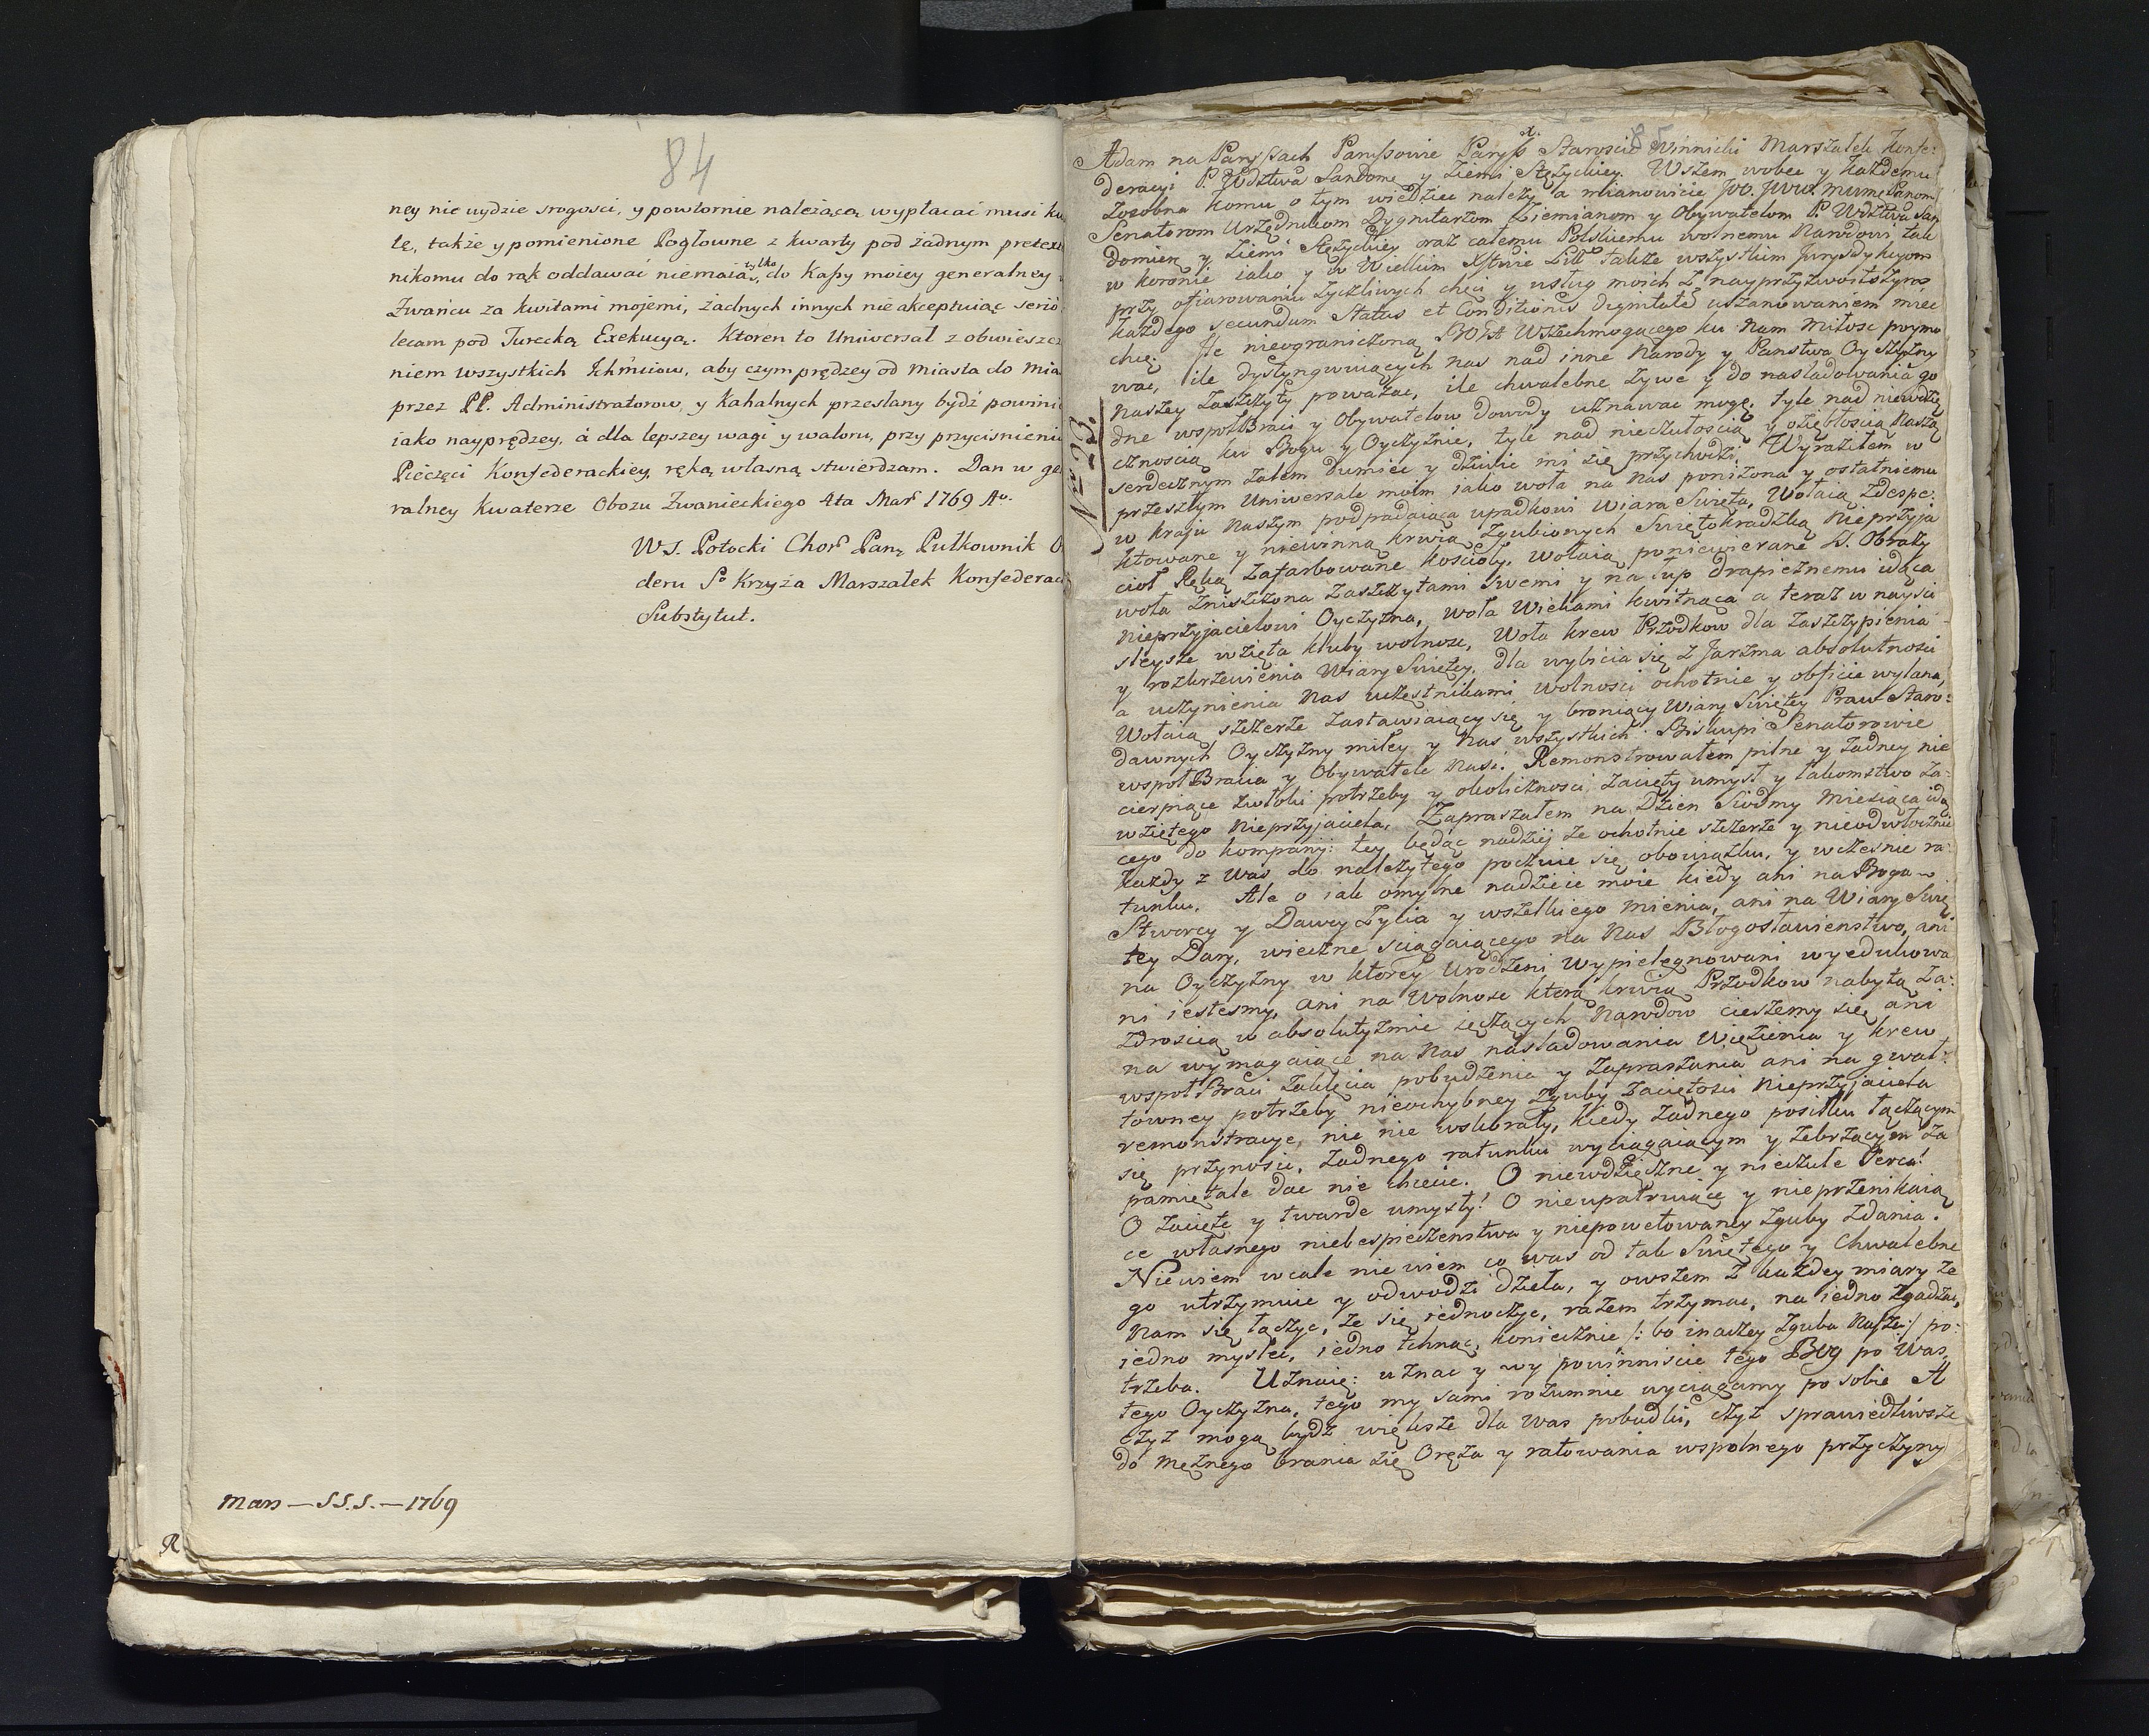 84
ney nie uydzie srogosci, y powtornie nalezącą wypłacać musi
lę, także y pomienione Pogłowne z kwarty pod żadnym
nikomu do rąk oddawać niemaią, tylko do Kaßy moiey generalney
Zwańcu za kwitami mojemi, żadnych innych nie akceptuiąc serio
lecam pod Turecką Exekucyą. Ktoren to Uniwersał z
niem wszystkich Jchmciow, aby czym prędzey od miasta do
przez PP. Administratorow, y Kahalnych przesłany bydź
iako nayprędzey, á dla lepszey wagi y waloru, przy
Pieczęci Konfederackiey, ręką własną stwierdzam. Dan w
ralney Kwaterze Obozu Zwanieckiego 4ta Mar 1769 Ao.
W S. Potocki Chor Panc Pułkownik
deru So Krzyża Marszałek
Substytut.
Mars — S.S.S. — 1769
R
85
Adam na Paryssach Paryssowie Paryss Staroscic Winnicki Marszałek Konfe:
deracyi P. Wdztwa Sandom y Ziemi Stężyckiey. Wszem wobec y każdemu
zosobna komu o tym wiedziec nalezy a mianowicie
Senatorom Urzędnikom Dygnitarzom Ziemianom y Obywatelom P. Wdztwa San
domier y Ziemi Stężyckiey oraz całemu Polskiemu wolnemu Narodowi tak
w koronie iako y w Wielkim Xstwie Litt także wszystkim Jurysdykcyom
przy ofiarowaniu zyczliwych chęci y usług moich z
każdego secundum Status et Conditionis Dignitate uszanowaniem miec
chcę. Jle nieograniczoną BOGA Wszechmogącego ku Nam Miłosc poymo
wac, ile dystyngwuiących nas nad inne Narody y Panstwa Oyczyzny
Naszey zaszczyty powazac, ile chwalebne zywe y do nasladowania go
dne wspołBraci y Obywatelow dowody uznawac mogę, tyle nad niewdzię
cznoscią ku Bogu y Oyczyznie, tyle nad nieczułoscią y oziębłoscią Naszą
serdecznym żalem dumiec y dziwic mi się przychodzi. Wyraziłem w
przeszłym Uniwersale moim iako woła na Nas poniżona y ostatniemu
Nro 23.
w kraju Naszym podpadaiąca upadkowi Wiara Swięta, Wołaią zdespe:
ktowane y niewinną krwią zgubionych Swiętokradzką Nieprzyja
cioł Ręką zafarbowane koscioły, wołaią poniewierane SS. Obrazy
woła zniszczona zaszczytami swemi y na łup drapieznemu idąca
Nieprzyjacielowi Oyczyzna, woła Wiekami kwitnąca a teraz w naysci
sleysze wzięta kluby wolnosc, Woła krew Przodkow dla zaszczypienia
y rozkrzewienia Wiary Swiętey, dla wybicia się z Jarzma absolutnosci
a uczynienia Nas uczęstnikami wolnosci ochotnie y obficie wylana,
Wołaią szczerze zastawiaiący się y broniący Wiary Swiętey Praw Staro:
dawnych Oyczyzny miłey y Nas wszystkich Biskupi Senatorowie
wspołBracia y Obywatele Nasi. Remonstrowałem pilne y żadney nie
cierpiące zwłoki potrzeby y okolicznosci, zacięty umysł y łakomstwo za:
wziętego Nieprzyjaciela, Zapraszałem na Dzien Siodmy Miesiąca idą
cego do kompanij: tey, będąc nadziej ze ochotnie szczerze y nieodwłocznie
każdy z was do nalezytego poczuie się obowiązku, y wczesnie ra:
tunku. Ale o iak omylne nadzieie moie kiedy ani na Boga
Stworcy y Dawcy Zycia y wszelkiego mienia, ani na Wiary Swię
tey Dary, wieczne sciągaiącego na Nas Błogosławienstwo, ani
na Oyczyzny w ktorey urodzeni wypielęgnowani wyedukowa
ni iestesmy, ani na Wolnosc ktorą krwią Przodkow nabytą za:
zdroscią w absolutyzmie ięczących Narodow cieszemy się ani
na wymagaiące na Nas nasladowania Więzienia y krew
wspołBraci zaklęcia pobudzenia y zapraszania ani na gwał:
towney potrzeby nieochybney zguby zaciętosci Nieprzyjaciela
remonstracye, nic nie wskorały, kiedy żadnego posiłku łączącym
się przynosic, żadnego ratunku wyciągaiącym y zebrzącym za
pamiętale dac nie chcecie. O niewdzięczne y nieczułe Serca!
O zacięte y twarde umysły! O nieupatruiące y nieprzenikaią
ce własnego niebespieczenstwa y niepowetowaney zguby zdania.
Niewiem wcale niewiem co was od tak Swiętego y Chwalebne
go utrzymuie y odwodzi dzieła, y owszem z kazdey miary ze
Nam się łączyc, ze się iednoczyc, razem trzymac, na iedno zgadzac,
iedno myslec, iedno tchnąc, koniecznie /: bo inaczey zguba Nasza :/ po:
trzeba. Uznaię: uznac y wy powinniscie tego Bog po Was,
tego Oyczyzna, tego my sami rozumnie wyciągamy po sobie A
czyz mogą bydz większe dla Was pobudki, czyz sprawiedliwsze
do męznego brania się Oręza y ratowania wspolnego przyczyny